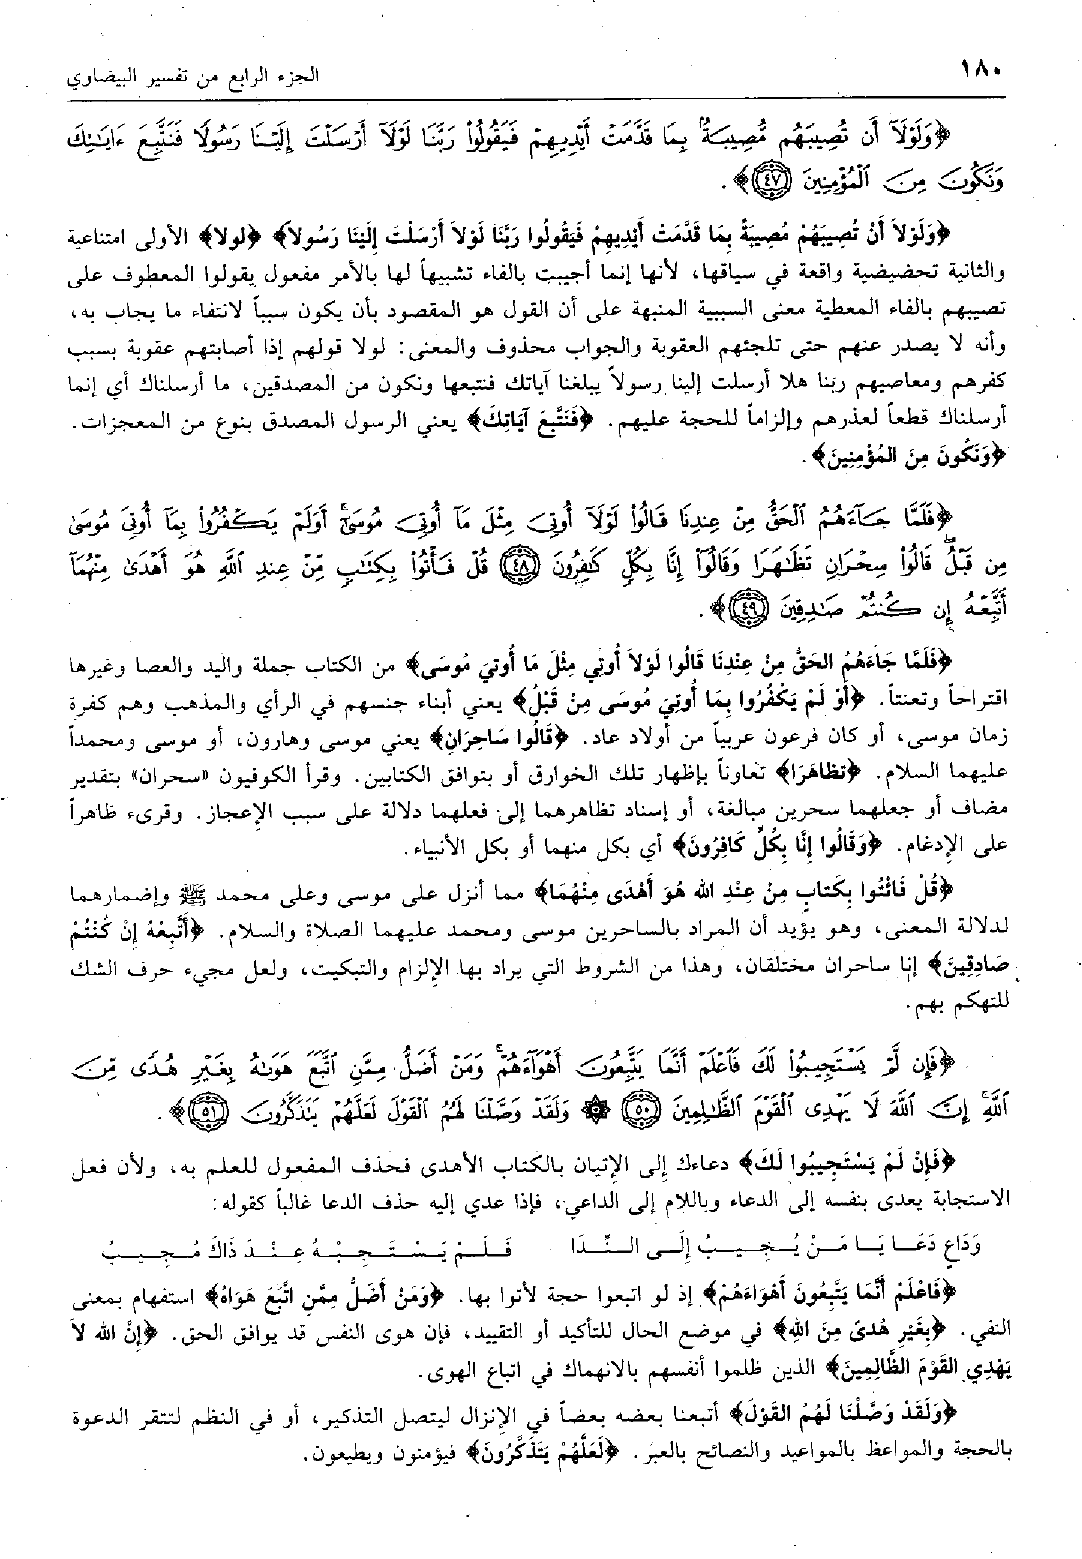 ١٨٠
الجزء الرابع من تفسير البيضاوي
﴿وَلَوْلَآ أَن تُصِيبَهُم مُّصِيبَةٌۢ بِمَا قَدَّمَتْ أَيْدِيهِمْ فَيَقُولُوا۟ رَبَّنَا لَوْلَآ أَرْسَلْتَ إِلَيْنَا رَسُولًا فَنَتَّبِعَ ءَايَٰتِكَ
وَنَكُونَ مِنَ ٱلْمُؤْمِنِينَ ٤٧﴾.
﴿وَلَوْلاَ أَنْ تُصِيبَهُمْ مُصِيبَةٌ بِمَا قَدَّمَتْ أَيْدِيهِمْ فَيَقُولُوا رَبَّنَا لَوْلاَ أَرْسَلْتَ إِلَيْنَا رَسُولاً﴾ ﴿لولا﴾ الأولى امتناعية
والثانية تحضيضية واقعة في سياقها، لأنها إنما أجيبت بالفاء تشبيهاً لها بالأمر مفعول يقولوا المعطوف على
تصيبهم بالفاء المعطية معنى السببية المنبهة على أن القول هو المقصود بأن يكون سبباً لانتفاء ما يجاب به،
وأنه لا يصدر عنهم حتى تلجئهم العقوبة والجواب محذوف والمعنى: لولا قولهم إذا أصابتهم عقوبة بسبب
كفرهم ومعاصيهم ربنا هلا أرسلت إلينا رسولاً يبلغنا آياتك فنتبعها ونكون من المصدقين، ما أرسلناك أي إنما
أرسلناك قطعاً لعذرهم وإلزاماً للحجة عليهم. ﴿فَنَتَّبِعَ آيَاتِكَ﴾ يعني الرسول المصدق بنوع من المعجزات.
﴿وَنَكُونَ مِنَ المُؤْمِنِينَ﴾.
﴿فَلَمَّا جَآءَهُمُ ٱلْحَقُّ مِنْ عِندِنَا قَالُوا۟ لَوْلَآ أُوتِىَ مِثْلَ مَآ أُوتِىَ مُوسَىٰٓ أَوَلَمْ يَكْفُرُوا۟ بِمَآ أُوتِىَ مُوسَىٰ
مِن قَبْلُ قَالُوا۟ سِحْرَانِ تَظَٰهَرَا وَقَالُوٓا۟ إِنَّا بِكُلٍّ كَٰفِرُونَ ٤٨ قُلْ فَأْتُوا۟ بِكِتَٰبٍ مِّنْ عِندِ ٱللَّهِ هُوَ أَهْدَىٰ مِنْهُمَآ
أَتَّبِعْهُ إِن كُنتُمْ صَٰدِقِينَ ٤٩﴾.
﴿فَلَمَّا جَاءَهُمُ الحَقُّ مِنْ عِنْدِنَا قَالُوا لَوْلاَ أُوتِي مِثْلَ مَا أُوتِيَ مُوسَى﴾ من الكتاب جملة واليد والعصا وغيرها
اقتراحاً وتعنتاً. ﴿أَوَ لَمْ يَكْفُرُوا بِمَا أُوتِيَ مُوسَى مِنْ قَبْلُ﴾ يعني أبناء جنسهم في الرأي والمذهب وهم كفرة
زمان موسى، أو كان فرعون عربياً من أولاد عاد. ﴿قَالُوا سَاحِرَانِ﴾ يعني موسى وهارون، أو موسى ومحمداً
عليهما السلام. ﴿تظَاهَرَا﴾ تعاوناً بإظهار تلك الخوارق أو بتوافق الكتابين. وقرأ الكوفيون «سحران» بتقدير
مضاف أو جعلهما سحرين مبالغة، أو إسناد تظاهرهما إلى فعلهما دلالة على سبب الإعجاز. وقرىء ظاهراً
على الإدغام. ﴿وَقَالُوا إِنَّا بِكُلٍّ كَافِرُونَ﴾ أي بكل منهما أو بكل الأنبياء.
﴿قُلْ فَائْتُوا بِكَتابٍ مِنْ عِنْدِ الله هُوَ أَهْدَى مِنْهُمَا﴾ مما أنزل على موسى وعلى محمد ﷺ وإضمارهما
لدلالة المعنى، وهو يؤيد أن المراد بالساحرين موسى ومحمد عليهما الصلاة والسلام. ﴿أَتَّبِعْهُ إنْ كُنْتُمْ
صَادِقِينَ﴾ إنا ساحران مختلقان، وهذا من الشروط التي يراد بها الإلزام والتبكيت، ولعل مجيء حرف الشك
للتهكم بهم.
﴿فَإِن لَّمْ يَسْتَجِيبُوا۟ لَكَ فَٱعْلَمْ أَنَّمَا يَتَّبِعُونَ أَهْوَآءَهُمْ وَمَنْ أَضَلُّ مِمَّنِ ٱتَّبَعَ هَوَىٰهُ بِغَيْرِ هُدًى مِّنَ
ٱللَّهِ إِنَّ ٱللَّهَ لَا يَهْدِى ٱلْقَوْمَ ٱلظَّٰلِمِينَ ٥٠ ۞ وَلَقَدْ وَصَّلْنَا لَهُمُ ٱلْقَوْلَ لَعَلَّهُمْ يَتَذَكَّرُونَ ٥١﴾.
﴿فَإِنْ لَمْ يَسْتَجِيبُوا لَكَ﴾ دعاءك إلى الإتيان بالكتاب الأهدى فحذف المفعول للعلم به، ولأن فعل
الاستجابة يعدى بنفسه إلى الدعاء وباللام إلى الداعي، فإذا عدي إليه حذف الدعا غالباً كقوله:
وَدَاعٍ دَعَا يَا مَنْ يُجِيبُ إِلَى النِّدَا فَلَمْ يَسْتَجِبْهُ عِنْدَ ذَاكَ مُجِيبُ
﴿فَاعْلَمْ أَنَّمَا يَتَّبِعُونَ أَهْوَاءَهُمْ﴾ إذ لو اتبعوا حجة لأتوا بها. ﴿وَمَنْ أَضَلُّ مِمَّنِ اتَّبَعَ هَوَاهُ﴾ استفهام بمعنى
النفي. ﴿بِغَيْرِ هُدىً مِنَ اللهِ﴾ في موضع الحال للتأكيد أو التقييد، فإن هوى النفس قد يوافق الحق. ﴿إنَّ الله لاَ
يَهْدِي القَوْمَ الظَّالِمِينَ﴾ الذين ظلموا أنفسهم بالانهماك في اتباع الهوى.
﴿وَلَقَدْ وَصَّلْنَا لَهُمُ القَوْلَ﴾ أتبعنا بعضه بعضاً في الإنزال ليتصل التذكير، أو في النظم لتتقر الدعوة
بالحجة والمواعظ بالمواعيد والنصائح بالعبر. ﴿لَعَلَّهُمْ يَتَذَكَّرُونَ﴾ فيؤمنون ويطيعون.